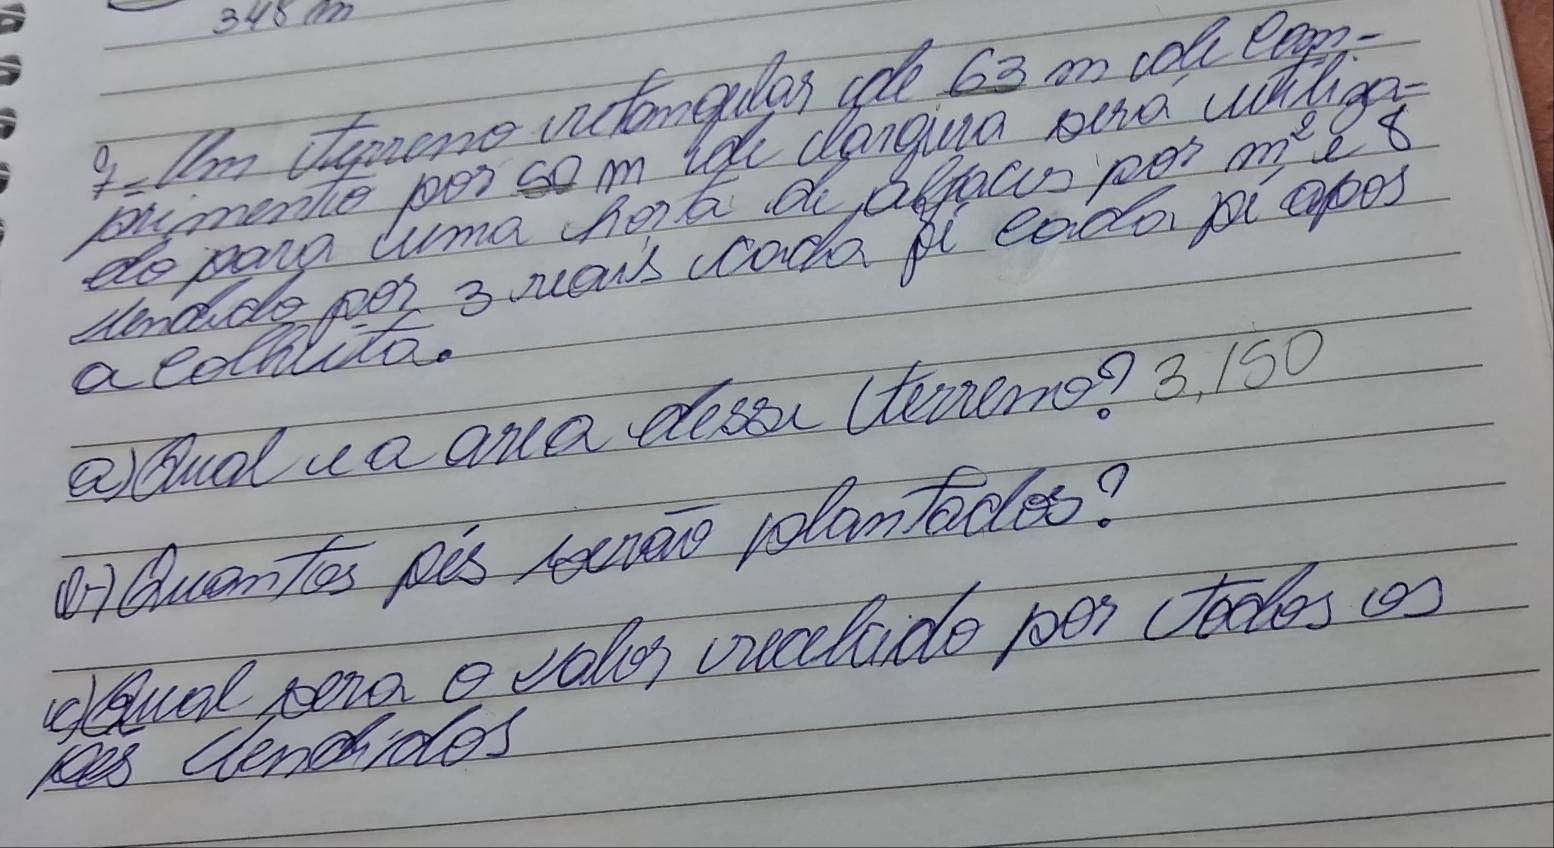 348 m
7- Um terreno retangular de 63 m de com-
primento por 50 m de largura será utiliza-
do para uma horta de alfaces por m² e 8
vendido por 3 reais cada pé cada pé apos
a colheita.
a) Qual e a area desse terreno? 3.150
b) Quantos pés serão plantados?
c) Qual sera o valor recebido por todos os
pes vendidos